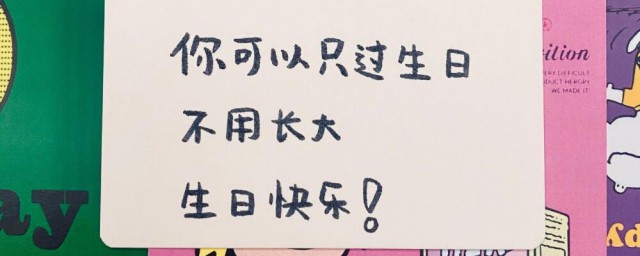 你可以只过生日
不用长大
生日快乐！
ition
ERY DIFFICULT
DUCT HERGRY
WE MADE IT!
ay